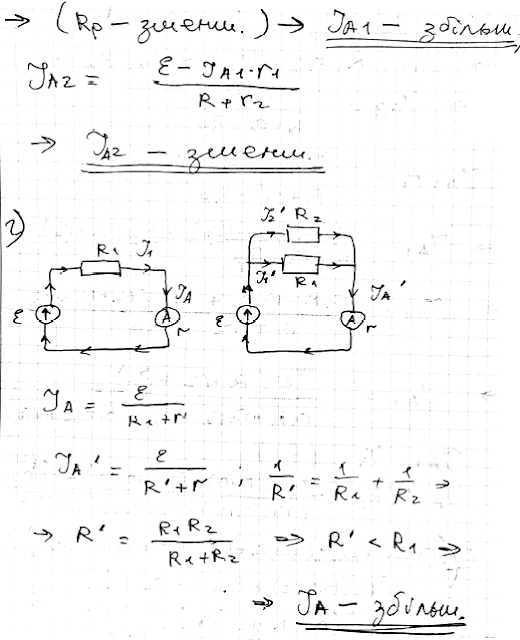 → (Rp – зменш.) → JA1 – збільш.
JA2 = (ε – JA1·r1) / (R + r2)
→ JA2 – зменш.
г)
R1 J1
JA
ε A r
J2' R2
J1' R1
JA'
ε A r
JA = ε / (R1 + r)
JA' = ε / (R' + r) ; 1/R' = 1/R1 + 1/R2 ⇒
→ R' = R1R2 / (R1+R2) ⇒ R' < R1 ⇒
⇒ JA – збільш.